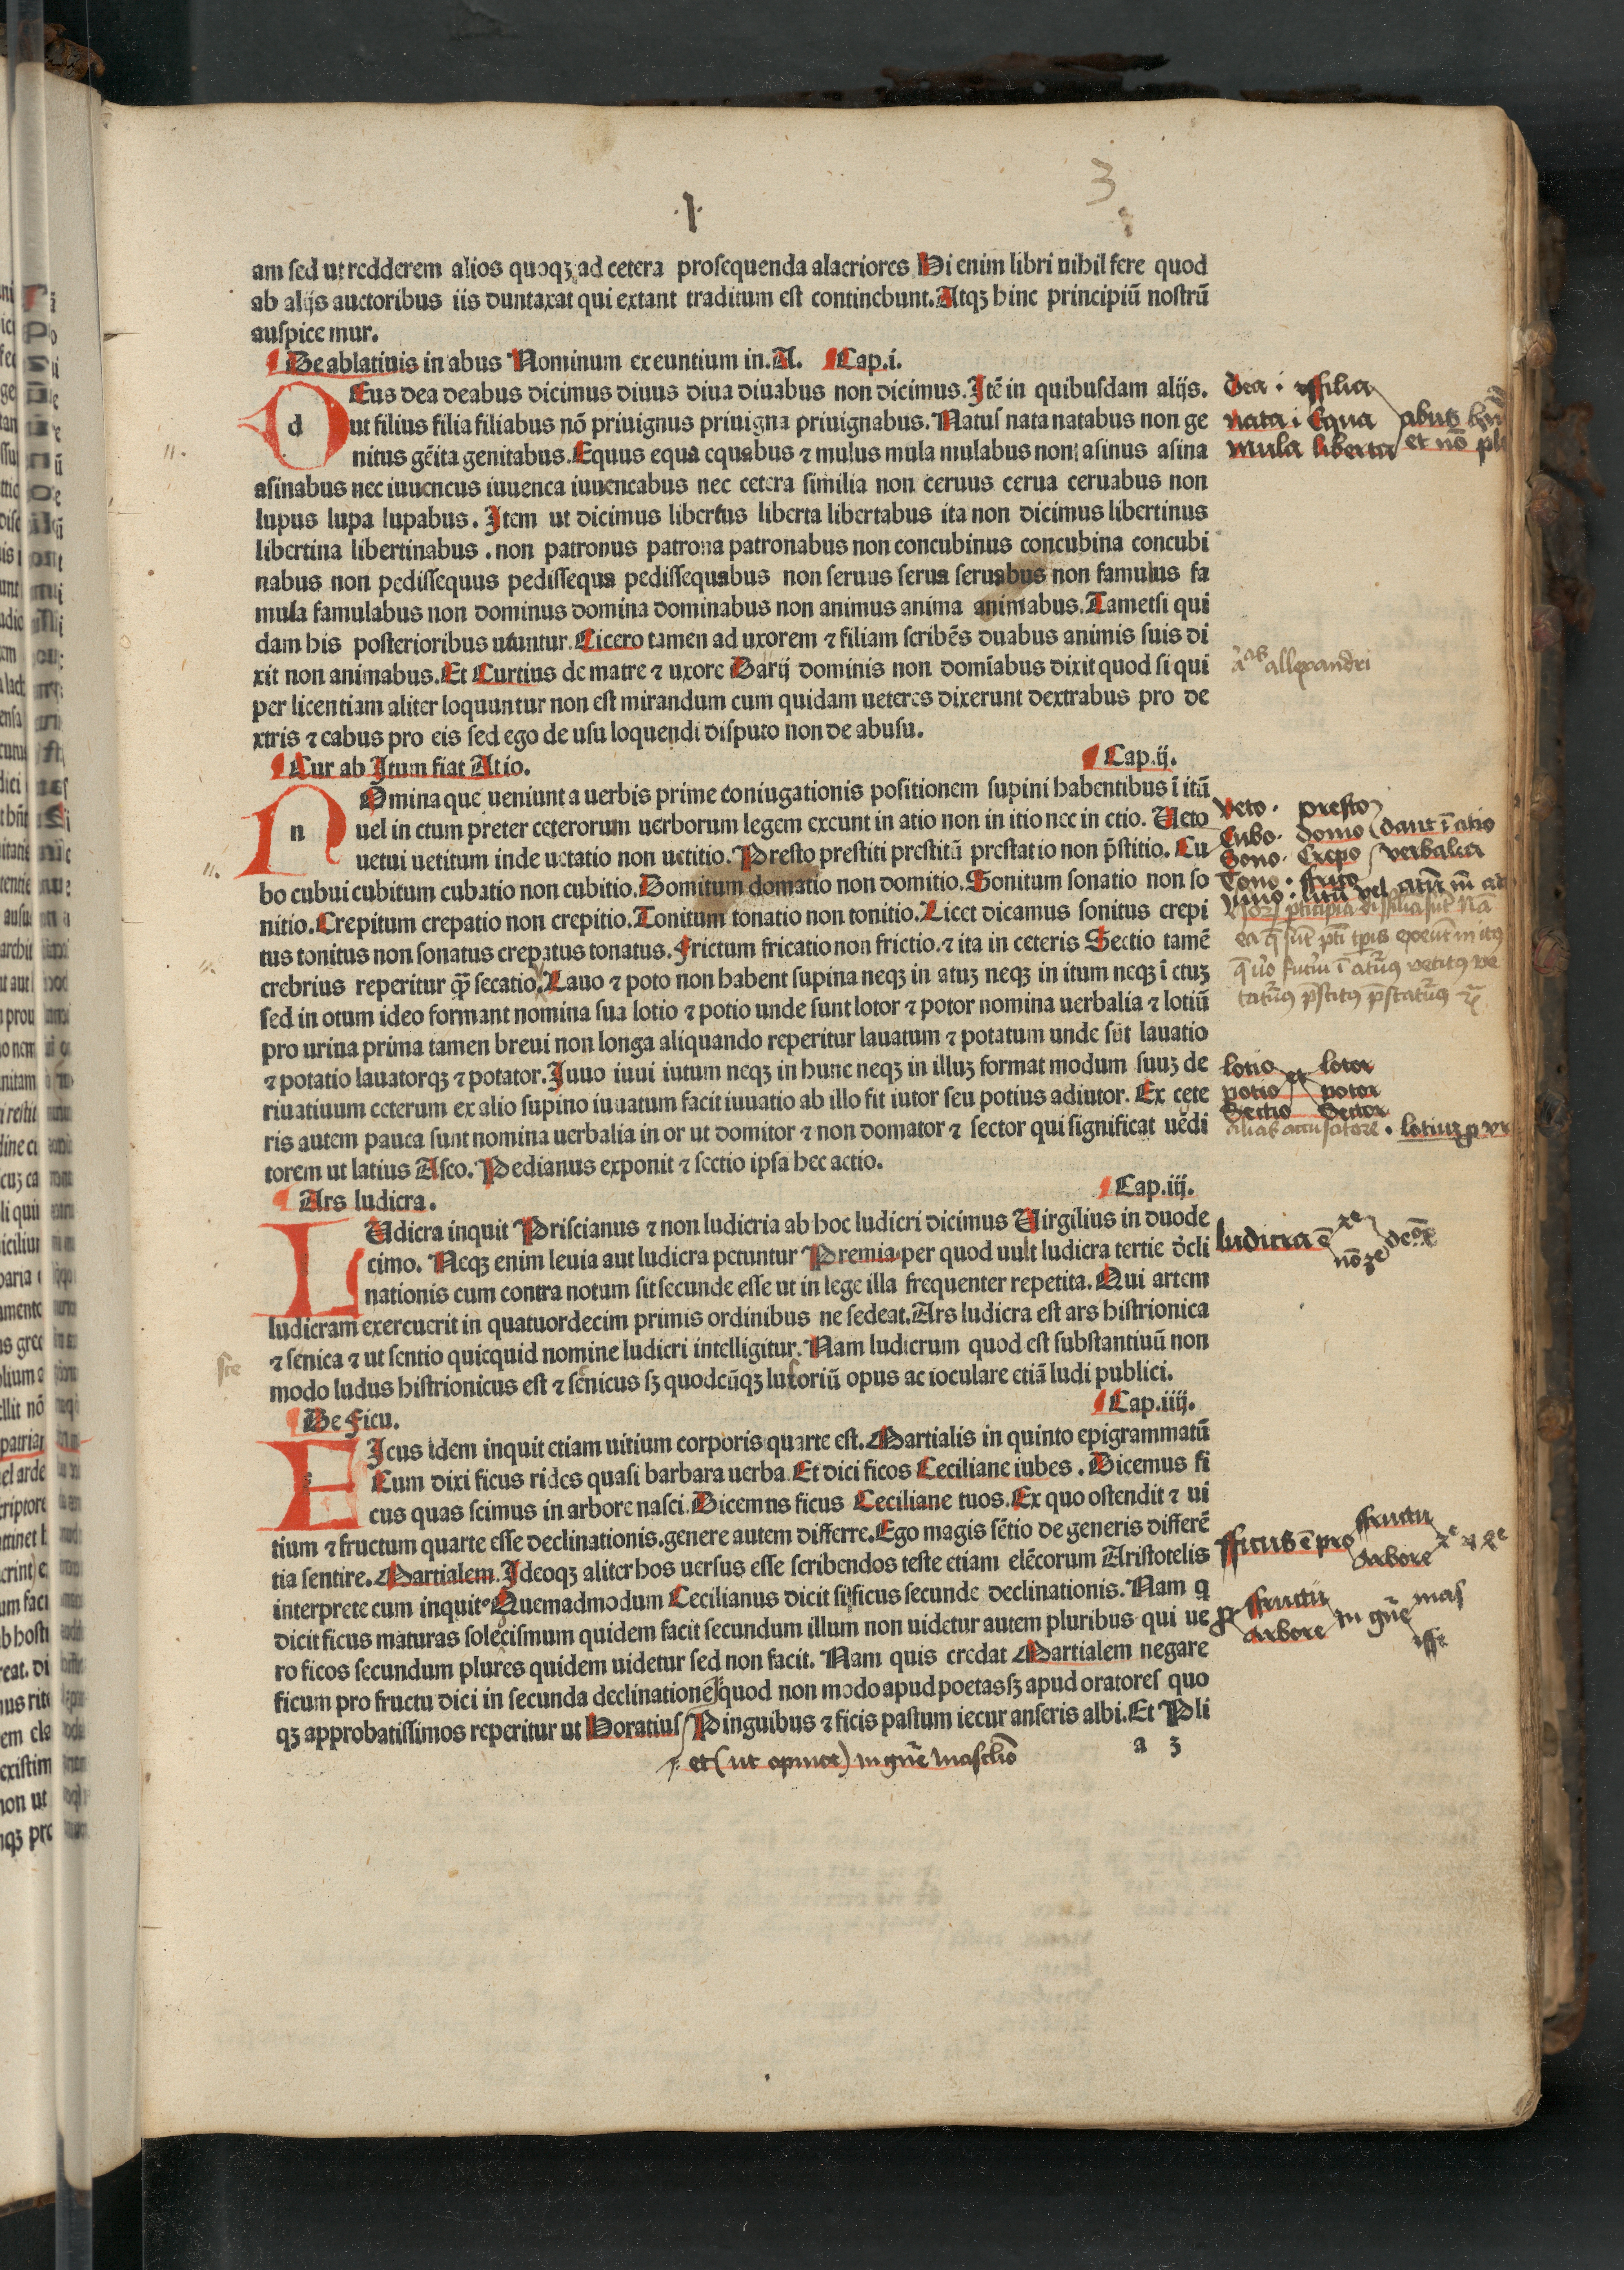 .1.
3
am sed ut redderem alios quoqꝫ ad cetera prosequenda alacriores Hi enim libri nihil fere quod
ab alijs auctoribus iis duntaxat qui extant traditum est continebunt. Atqꝫ hinc principiū nostrū
auspice mur.
De ablatiuis in abus Nominum exeuntium in. A. Cap. i.
dEus dea deabus dicimus diuus diua diuabus non dicimus. Itē in quibusdam alijs.
ut filius filia filiabus nō priuignus priuigna priuignabus. Natus nata natabus non ge
nitus gēita genitabus. Equus equa equabus ⁊ mulus mula mulabus non asinus asina
asinabus nec iuuencus iuuenca iuuencabus nec cetera similia non ceruus cerua ceruabus non
lupus lupa lupabus. Item ut dicimus libertus liberta libertabus ita non dicimus libertinus
libertina libertinabus . non patronus patrona patronabus non concubinus concubina concubi
nabus non pedissequus pedissequa pedissequabus non seruus serua seruabus non famulus fa
mula famulabus non dominus domina dominabus non animus anima animabus. Tametsi qui
dam his posterioribus utuntur. Cicero tamen ad uxorem ⁊ filiam scribēs duabus animis suis di
xit non animabus. Et Curtius de matre ⁊ uxore Darij dominis non domīabus dixit quod si qui
per licentiam aliter loquuntur non est mirandum cum quidam ueteres dixerunt dextrabus pro de
xtris ⁊ eabus pro eis sed ego de usu loquendi disputo non de abusu.
Cur ab Itum fiat Atio. Cap. ij.
nOmina que ueniunt a uerbis prime coniugationis positionem supini habentibus ī itū
uel in ctum preter ceterorum uerborum legem exeunt in atio non in itio nec in ctio. Ueto
uetui uetitum inde uetatio non uetitio. Presto prestiti prestitū prestatio non p̄stitio. Cu
bo cubui cubitum cubatio non cubitio. Domitum domatio non domitio. Sonitum sonatio non so
nitio. Crepitum crepatio non crepitio. Tonitum tonatio non tonitio. Licet dicamus sonitus crepi
tus tonitus non sonatus crepatus tonatus. Frictum fricatio non frictio. ⁊ ita in ceteris Sectio tamē
crebrius reperitur q̄ꝫ secatio. Lauo ⁊ poto non habent supina neqꝫ in atuꝫ neqꝫ in itum neqꝫ ī ctuꝫ
sed in otum ideo formant nomina sua lotio ⁊ potio unde sunt lotor ⁊ potor nomina uerbalia ⁊ lotiū
pro urina prima tamen breui non longa aliquando reperitur lauatum ⁊ potatum unde sūt lauatio
⁊ potatio lauatorqꝫ ⁊ potator. Iuuo iuui iutum neqꝫ in hunc neqꝫ in illuꝫ format modum suuꝫ de
riuatiuum ceterum ex alio supino iuuatum facit iuuatio ab illo fit iutor seu potius adiutor. Ex cete
ris autem pauca sunt nomina uerbalia in or ut domitor ⁊ non domator ⁊ sector qui significat uēdi
torem ut latius Asco. Pedianus exponit ⁊ sectio ipsa hec actio.
Ars ludicra. Cap. iij.
LUdicra inquit Priscianus ⁊ non ludicria ab hoc ludicri dicimus Uirgilius in duode
cimo. Neqꝫ enim leuia aut ludicra petuntur Premia per quod uult ludicra tertie d̄cli
nationis cum contra notum sit secunde esse ut in lege illa frequenter repetita. Qui artem
ludicram exercuerit in quatuordecim primis ordinibus ne sedeat. Ars ludicra est ars histrionica
⁊ senica ⁊ ut sentio quicquid nomine ludicri intelligitur. Nam ludicrum quod est substantiuū non
modo ludus histrionicus est ⁊ senicus sꝫ quodcūqꝫ lusoriū opus ac ioculare etiā ludi publici.
De Ficu. Cap. iiij.
FIcus idem inquit etiam uitium corporis quarte est. Martialis in quinto epigrammatū
Cum dixi ficus rides quasi barbara uerba. Et dici ficos Ceciliane iubes . Dicemus fi
cus quas scimus in arbore nasci. Dicemus ficus Ceciliane tuos. Ex quo ostendit ⁊ ui
tium ⁊ fructum quarte esse declinationis. genere autem differre. Ego magis sētio de generis differē
tia sentire. Martialem. Ideoqꝫ aliter hos uersus esse scribendos teste etiam elēcorum Aristotelis
interprete cum inquit Quemadmodum Cecilianus dicit si ficus secunde declinationis. Nam q
dicit ficus maturas solecismum quidem facit secundum illum non uidetur autem pluribus qui ue
ro ficos secundum plures quidem uidetur sed non facit. Nam quis credat Martialem negare
ficum pro fructu dici in secunda declinatione quod non modo apud poetas sꝫ apud oratores quo
qꝫ approbatissimos reperitur ut Horatius Pinguibus ⁊ ficis pastum iecur anseris albi. Et Pli
a 3
dea i ffilia
nata i Equa
mula liberta
abus
et nō
allexandri
veto . presto
Cubo . domo
Sono . Crepo
Tono . frico
dant ī atio
verbalia
lotio et lotor
potio potor
Sectio Sector
alias accusatore .
ludicra ē
ste
fficus ē pro fructu
Arbore
fructu
Arbore
in gn̄e
mas
et (ut opinor) in gn̄e